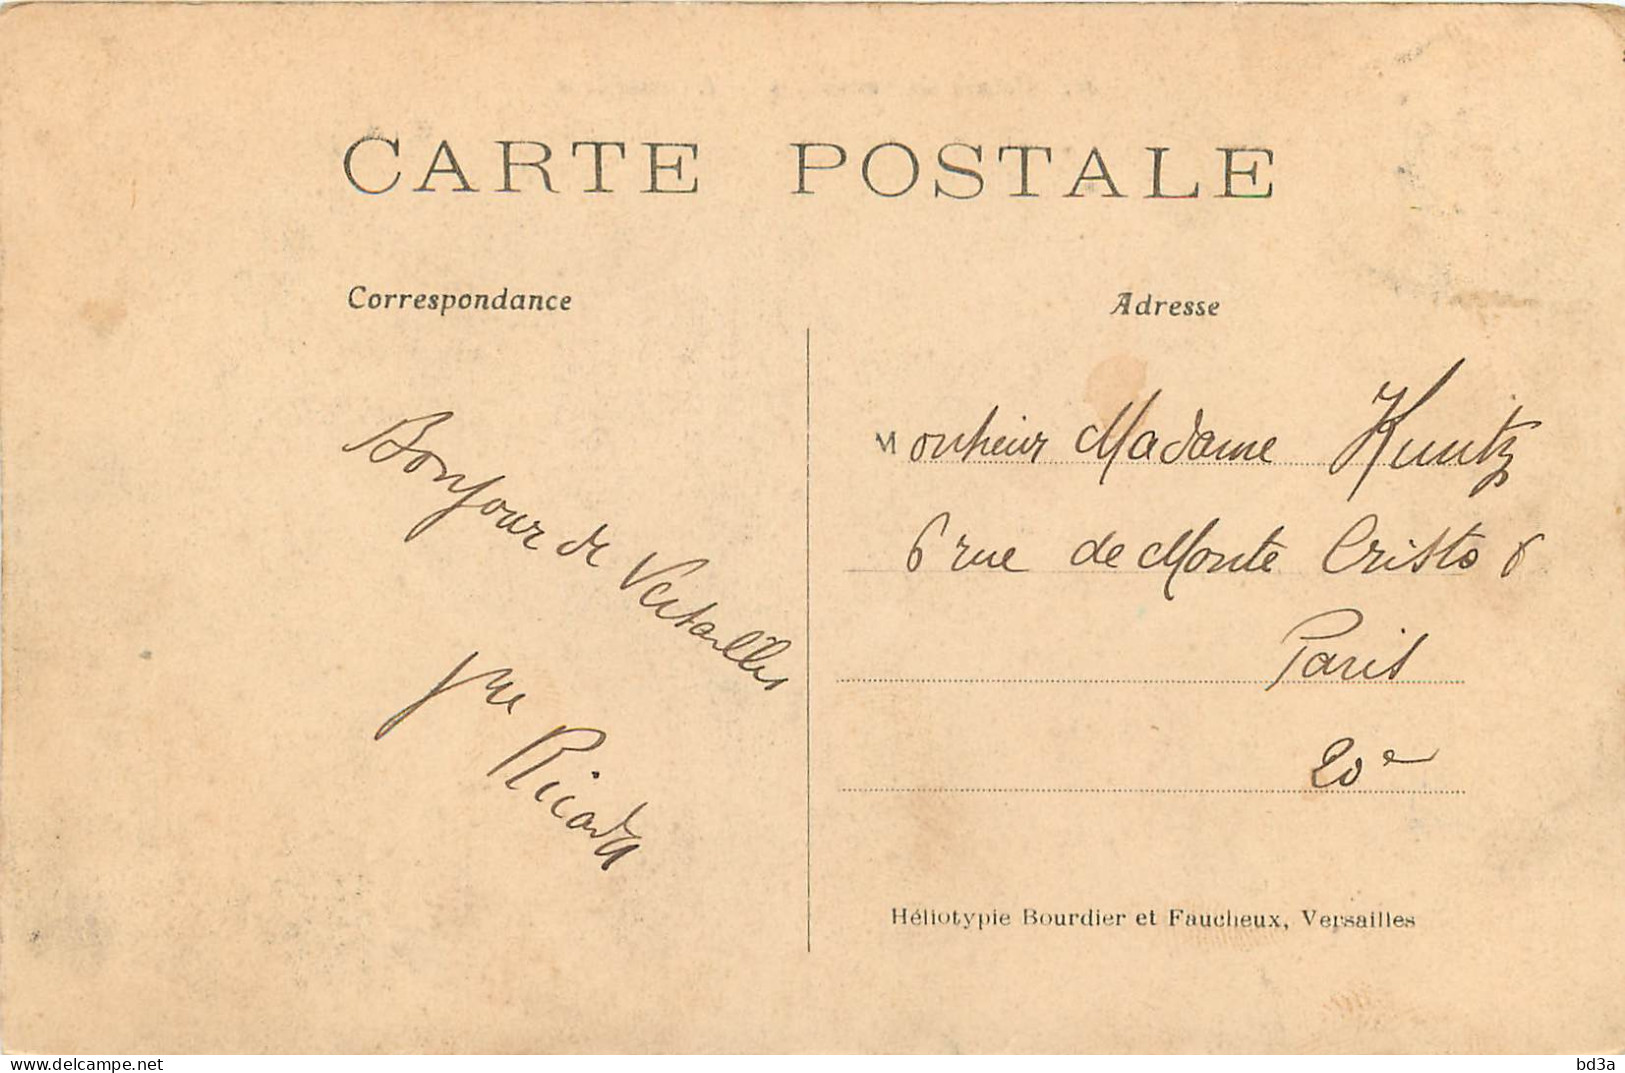 CARTE POSTALE
Correspondance
Adresse
Bonjour de Versailles
Monsieur Madame Kuntz
6 rue de Monte Cristo 6
Paris
20e
Héliotypie Bourdier et Faucheux, Versailles
www.delcampe.net
bd3a